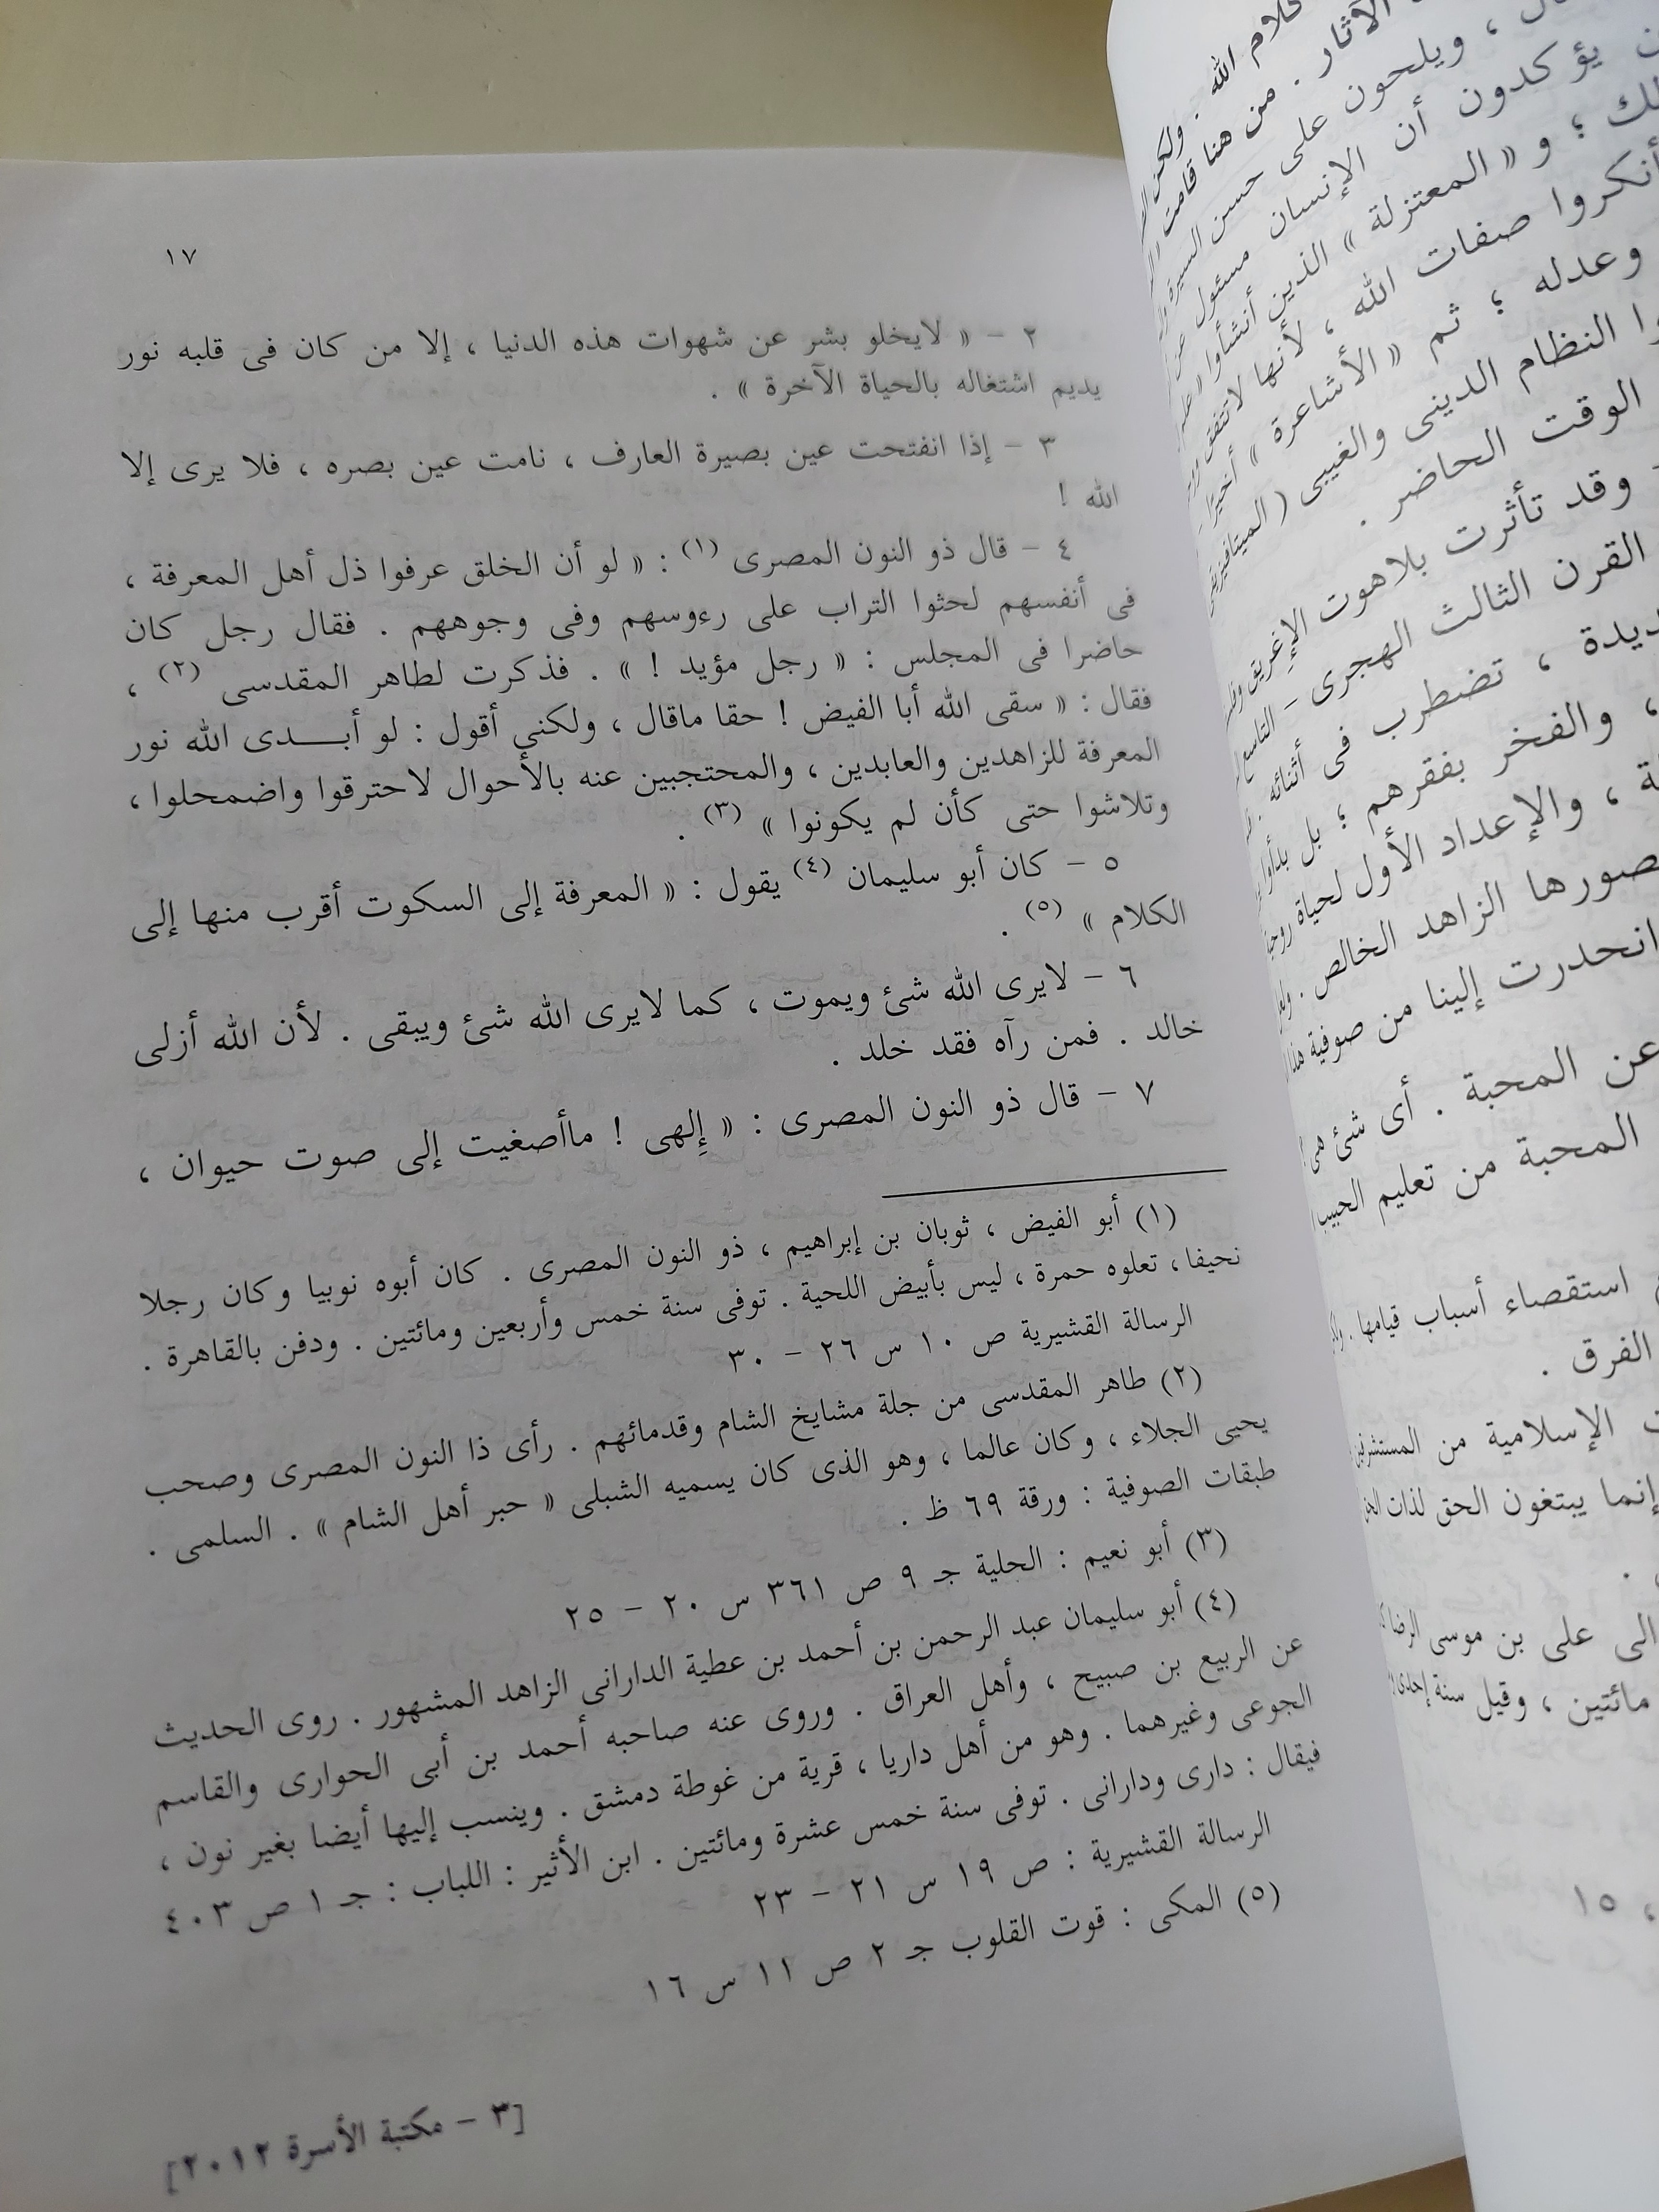 ١٧
٢ - « لايخلو بشر عن شهوات هذه الدنيا ، إلا من كان فى قلبه نور
يديم اشتغاله بالحياة الآخرة » .
٣ - إذا انفتحت عين بصيرة العارف ، نامت عين بصره ، فلا يرى إلا
الله !
٤ - قال ذو النون المصرى (١) : « لو أن الخلق عرفوا ذل أهل المعرفة ،
فى أنفسهم لحثوا التراب على رءوسهم وفى وجوههم . فقال رجل كان
حاضرا فى المجلس : « رجل مؤيد ! » . فذكرت لطاهر المقدسى (٢) ،
فقال : « سقى الله أبا الفيض ! حقا ماقال ، ولكنى أقول : لو أبـــدى الله نور
المعرفة للزاهدين والعابدين ، والمحتجبين عنه بالأحوال لاحترقوا واضمحلوا ،
وتلاشوا حتى كأن لم يكونوا » (٣) .
٥ - كان أبو سليمان (٤) يقول : « المعرفة إلى السكوت أقرب منها إلى
الكلام » (٥) .
٦ - لايرى الله شئ ويموت ، كما لايرى الله شئ ويبقى . لأن الله أزلى
خالد . فمن رآه فقد خلد .
٧ - قال ذو النون المصرى : « إِلهى ! ماأصغيت إلى صوت حيوان ،
(١) أبو الفيض ، ثوبان بن إبراهيم ، ذو النون المصرى . كان أبوه نوبيا وكان رجلا
نحيفا ، تعلوه حمرة ، ليس بأبيض اللحية . توفى سنة خمس وأربعين ومائتين . ودفن بالقاهرة .
الرسالة القشيرية ص ١٠ س ٢٦ - ٣٠
(٢) طاهر المقدسى من جلة مشايخ الشام وقدمائهم . رأى ذا النون المصرى وصحب
يحيى الجلاء ، وكان عالما ، وهو الذى كان يسميه الشبلى « حبر أهل الشام » . السلمى .
طبقات الصوفية : ورقة ٦٩ ظ .
(٣) أبو نعيم : الحلية جـ ٩ ص ٣٦١ س ٢٠ - ٢٥
(٤) أبو سليمان عبد الرحمن بن أحمد بن عطية الدارانى الزاهد المشهور . روى الحديث
عن الربيع بن صبيح ، وأهل العراق . وروى عنه صاحبه أحمد بن أبى الحوارى والقاسم
الجوعى وغيرهما . وهو من أهل داريا ، قرية من غوطة دمشق . وينسب إليها أيضا بغير نون ،
فيقال : دارى ودارانى . توفى سنة خمس عشرة ومائتين . ابن الأثير : اللباب : جـ ١ ص ٤٠٣
الرسالة القشيرية : ص ١٩ س ٢١ - ٢٣
(٥) المكى : قوت القلوب جـ ٢ ص ١١ س ١٦
[٣ - مكتبة الأسرة ٢٠١٢]
كلام الله . ولكن
الآثار . من هنا قامت
، ويلحون على حسن السيرة
يؤكدون أن الإنسان مسئول عن
؛ و « المعتزلة » الذين أنشأوا
أنكروا صفات الله ، لأنها لاتتفق
وعدله ؛ ثم « الأشاعرة » أخيرًا
النظام الدينى والغيبى (
الوقت الحاضر .
وقد تأثرت بلاهوت الإغريق
القرن الثالث الهجرى - التاسع
، تضطرب فى أثنائه
، والفخر بفقرهم ؛ بل بدأوا
، والإعداد الأول لحياة
الزاهد الخالص .
انحدرت إلينا من صوفية هذا
عن المحبة . أى شئ هى
المحبة من تعليم
استقصاء أسباب قيامها .
الفرق .
الإسلامية من المستشرقين
إنما يبتغون الحق لذات
على بن موسى الرضا
مائتين ، وقيل سنة إحدى
، ١٥